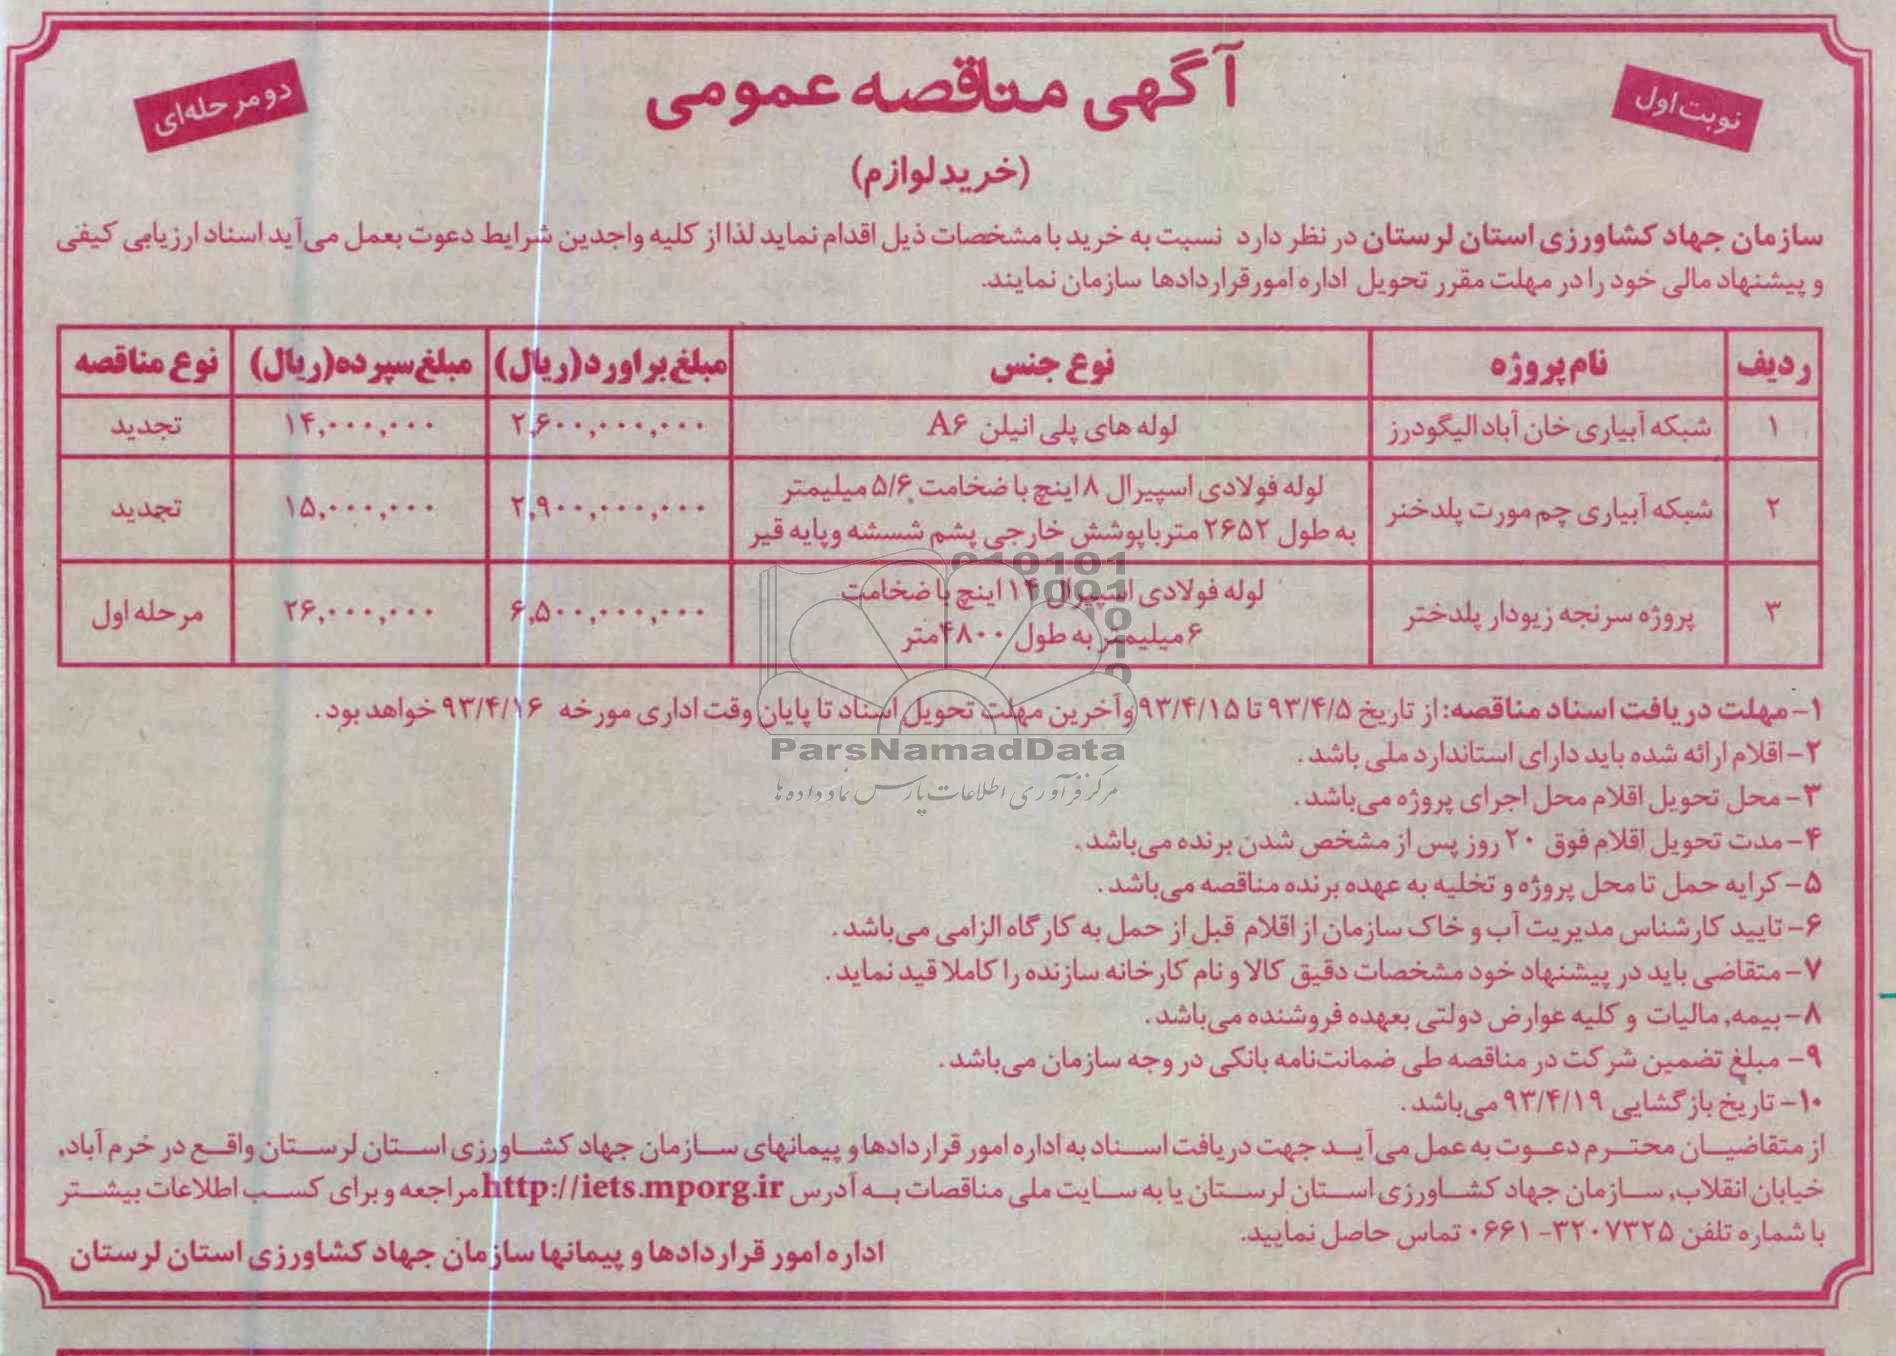 نوبت اول
آگهی مناقصه عمومی
دو مرحله‌ای
(خرید لوازم)
سازمان جهاد کشاورزی استان لرستان در نظر دارد نسبت به خرید با مشخصات ذیل اقدام نماید لذا از کلیه واجدین شرایط دعوت بعمل می‌آید اسناد ارزیابی کیفی
و پیشنهاد مالی خود را در مهلت مقرر تحویل اداره امور قراردادها سازمان نمایند.
ردیف نام پروژه نوع جنس مبلغ براورد (ریال) مبلغ سپرده (ریال) نوع مناقصه
۱ شبکه آبیاری خان آباد الیگودرز لوله های پلی اتیلن A۶ ۲,۶۰۰,۰۰۰,۰۰۰ ۱۴,۰۰۰,۰۰۰ تجدید
۲ شبکه آبیاری چم مورت پلدختر لوله فولادی اسپیرال ۸ اینچ با ضخامت ۵/۶ میلیمتر
به طول ۲۶۵۲ متر باپوشش خارجی پشم شسشه و پایه قیر ۲,۹۰۰,۰۰۰,۰۰۰ ۱۵,۰۰۰,۰۰۰ تجدید
۳ پروژه سرنجه زیودار پلدختر لوله فولادی اسپیرال ۱۴ اینچ با ضخامت
۶ میلیمتر به طول ۴۸۰۰ متر ۶,۵۰۰,۰۰۰,۰۰۰ ۲۶,۰۰۰,۰۰۰ مرحله اول
۱- مهلت دریافت اسناد مناقصه: از تاریخ ۹۳/۴/۵ تا ۹۳/۴/۱۵ و آخرین مهلت تحویل اسناد تا پایان وقت اداری مورخه ۹۳/۴/۱۶ خواهد بود.
۲- اقلام ارائه شده باید دارای استاندارد ملی باشد.
۳- محل تحویل اقلام محل اجرای پروژه می‌باشد.
۴- مدت تحویل اقلام فوق ۲۰ روز پس از مشخص شدن برنده می‌باشد.
۵- کرایه حمل تا محل پروژه و تخلیه به عهده برنده مناقصه می‌باشد.
۶- تایید کارشناس مدیریت آب و خاک سازمان از اقلام قبل از حمل به کارگاه الزامی می‌باشد.
۷- متقاضی باید در پیشنهاد خود مشخصات دقیق کالا و نام کارخانه سازنده را کاملا قید نماید.
۸- بیمه, مالیات و کلیه عوارض دولتی بعهده فروشنده می‌باشد.
۹- مبلغ تضمین شرکت در مناقصه طی ضمانت‌نامه بانکی در وجه سازمان می‌باشد.
۱۰- تاریخ بازگشایی ۹۳/۴/۱۹ می‌باشد.
از متقاضیان محترم دعوت به عمل می‌آید جهت دریافت اسناد به اداره امور قراردادها و پیمانهای سازمان جهاد کشاورزی استان لرستان واقع در خرم آباد,
خیابان انقلاب, سازمان جهاد کشاورزی استان لرستان یا به سایت ملی مناقصات به آدرس http://iets.mporg.ir مراجعه و برای کسب اطلاعات بیشتر
با شماره تلفن ۳۲۰۷۳۲۵-۰۶۶۱ تماس حاصل نمایید.
اداره امور قراردادها و پیمانها سازمان جهاد کشاورزی استان لرستان
ParsNamadData
مرکز فرآوری اطلاعات پارس نماد داده ها